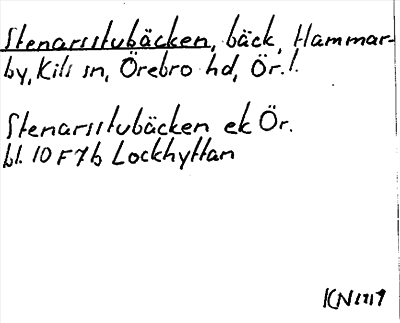 Stenarsstubäcken, bäck, Hammar-
by, Kils sn, Örebro hd, Ör. l.
Stenarsstubäcken ek Ör.
bl. 10 F 7b Lockhyttan